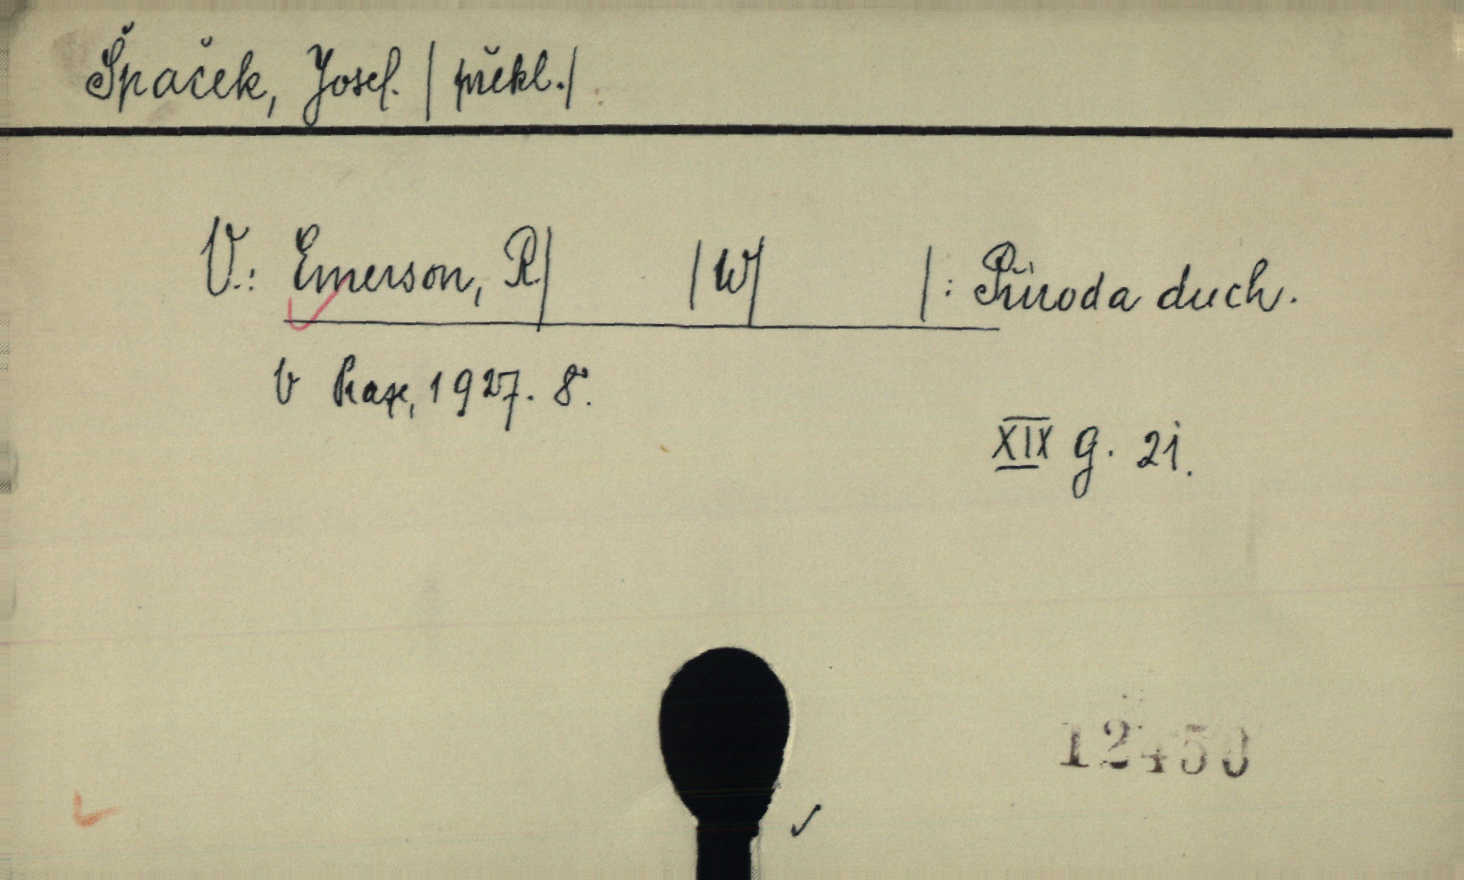 Špaček, Josef. | překl. |
V.: Emerson, R| |W| |: Příroda duch.
V Praze, 1927. 8°.
XIX g. 21.
12450